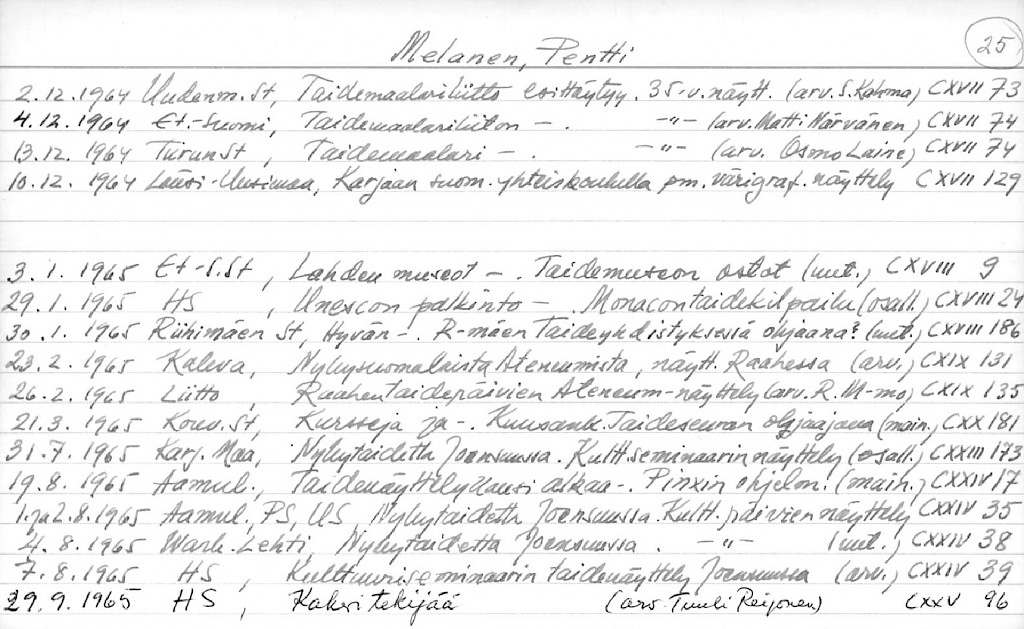 25
Melanen, Pentti
2.12.1964 Uudenm. St, Taidemaalariliitto esittäytyy. 35-v. näytt. (arv. S. Kahma) CXVII 73
4.12.1964 Et.-Suomi, Taidemaalariliiton - . -"- (arv. Matti Närvänen) CXVII 74
13.12.1964 Turun St, Taidemaalari - . -"- (arv. Osmo Laine) CXVII 74
10.12.1964 Länsi-Uusimaa, Karjaan suom. yhteiskoululla pm. värigraf. näyttely CXVII 129
3.1.1965 Et-S.St, Lahden museot - . Taidemuseon ostot (uut.) CXVIII 9
29.1.1965 HS, Unescon palkinto - Monacon taidekilpailu (osall.) CXVIII 24
30.1.1965 Riihimäen St, Hyvän - . R-mäen Taideyhdistyksessä ohjaana? (uut.) CXVIII 186
23.2.1965 Kaleva, Nykysuomalaista Ateneumista, näytt. Raahessa (arv.) CXIX 131
26.2.1965 Liitto, Raahen taidepäivien Ateneum-näyttely (arv. R. M-mo) CXIX 135
21.3.1965 Kouv. St, Kursseja ja - . Kuusank. Taideseuran ohjaajana (main.) CXX 181
31.7.1965 Karj. Maa, Nykytaidetta Joensuussa. Kultt.seminaarin näyttely (osall.) CXXIII 173
19.8.1965 Aamul., Taidenäyttelykausi alkaa - . Pinxin ohjelm. (main.) CXXIV 17
1. ja 2.8.1965 Aamul., PS, US, Nykytaidetta Joensuussa. Kultt. päivien näyttely CXXIV 35
4.8.1965 Wark. Lehti, Nykytaidetta Joensuussa. -"- (uut.) CXXIV 38
7.8.1965 HS, Kulttuuriseminaarin taidenäyttely Joensuussa (arv.) CXXIV 39
29.9.1965 HS, Kaksi tekijää (arv. Tuuli Reijonen) CXXV 96